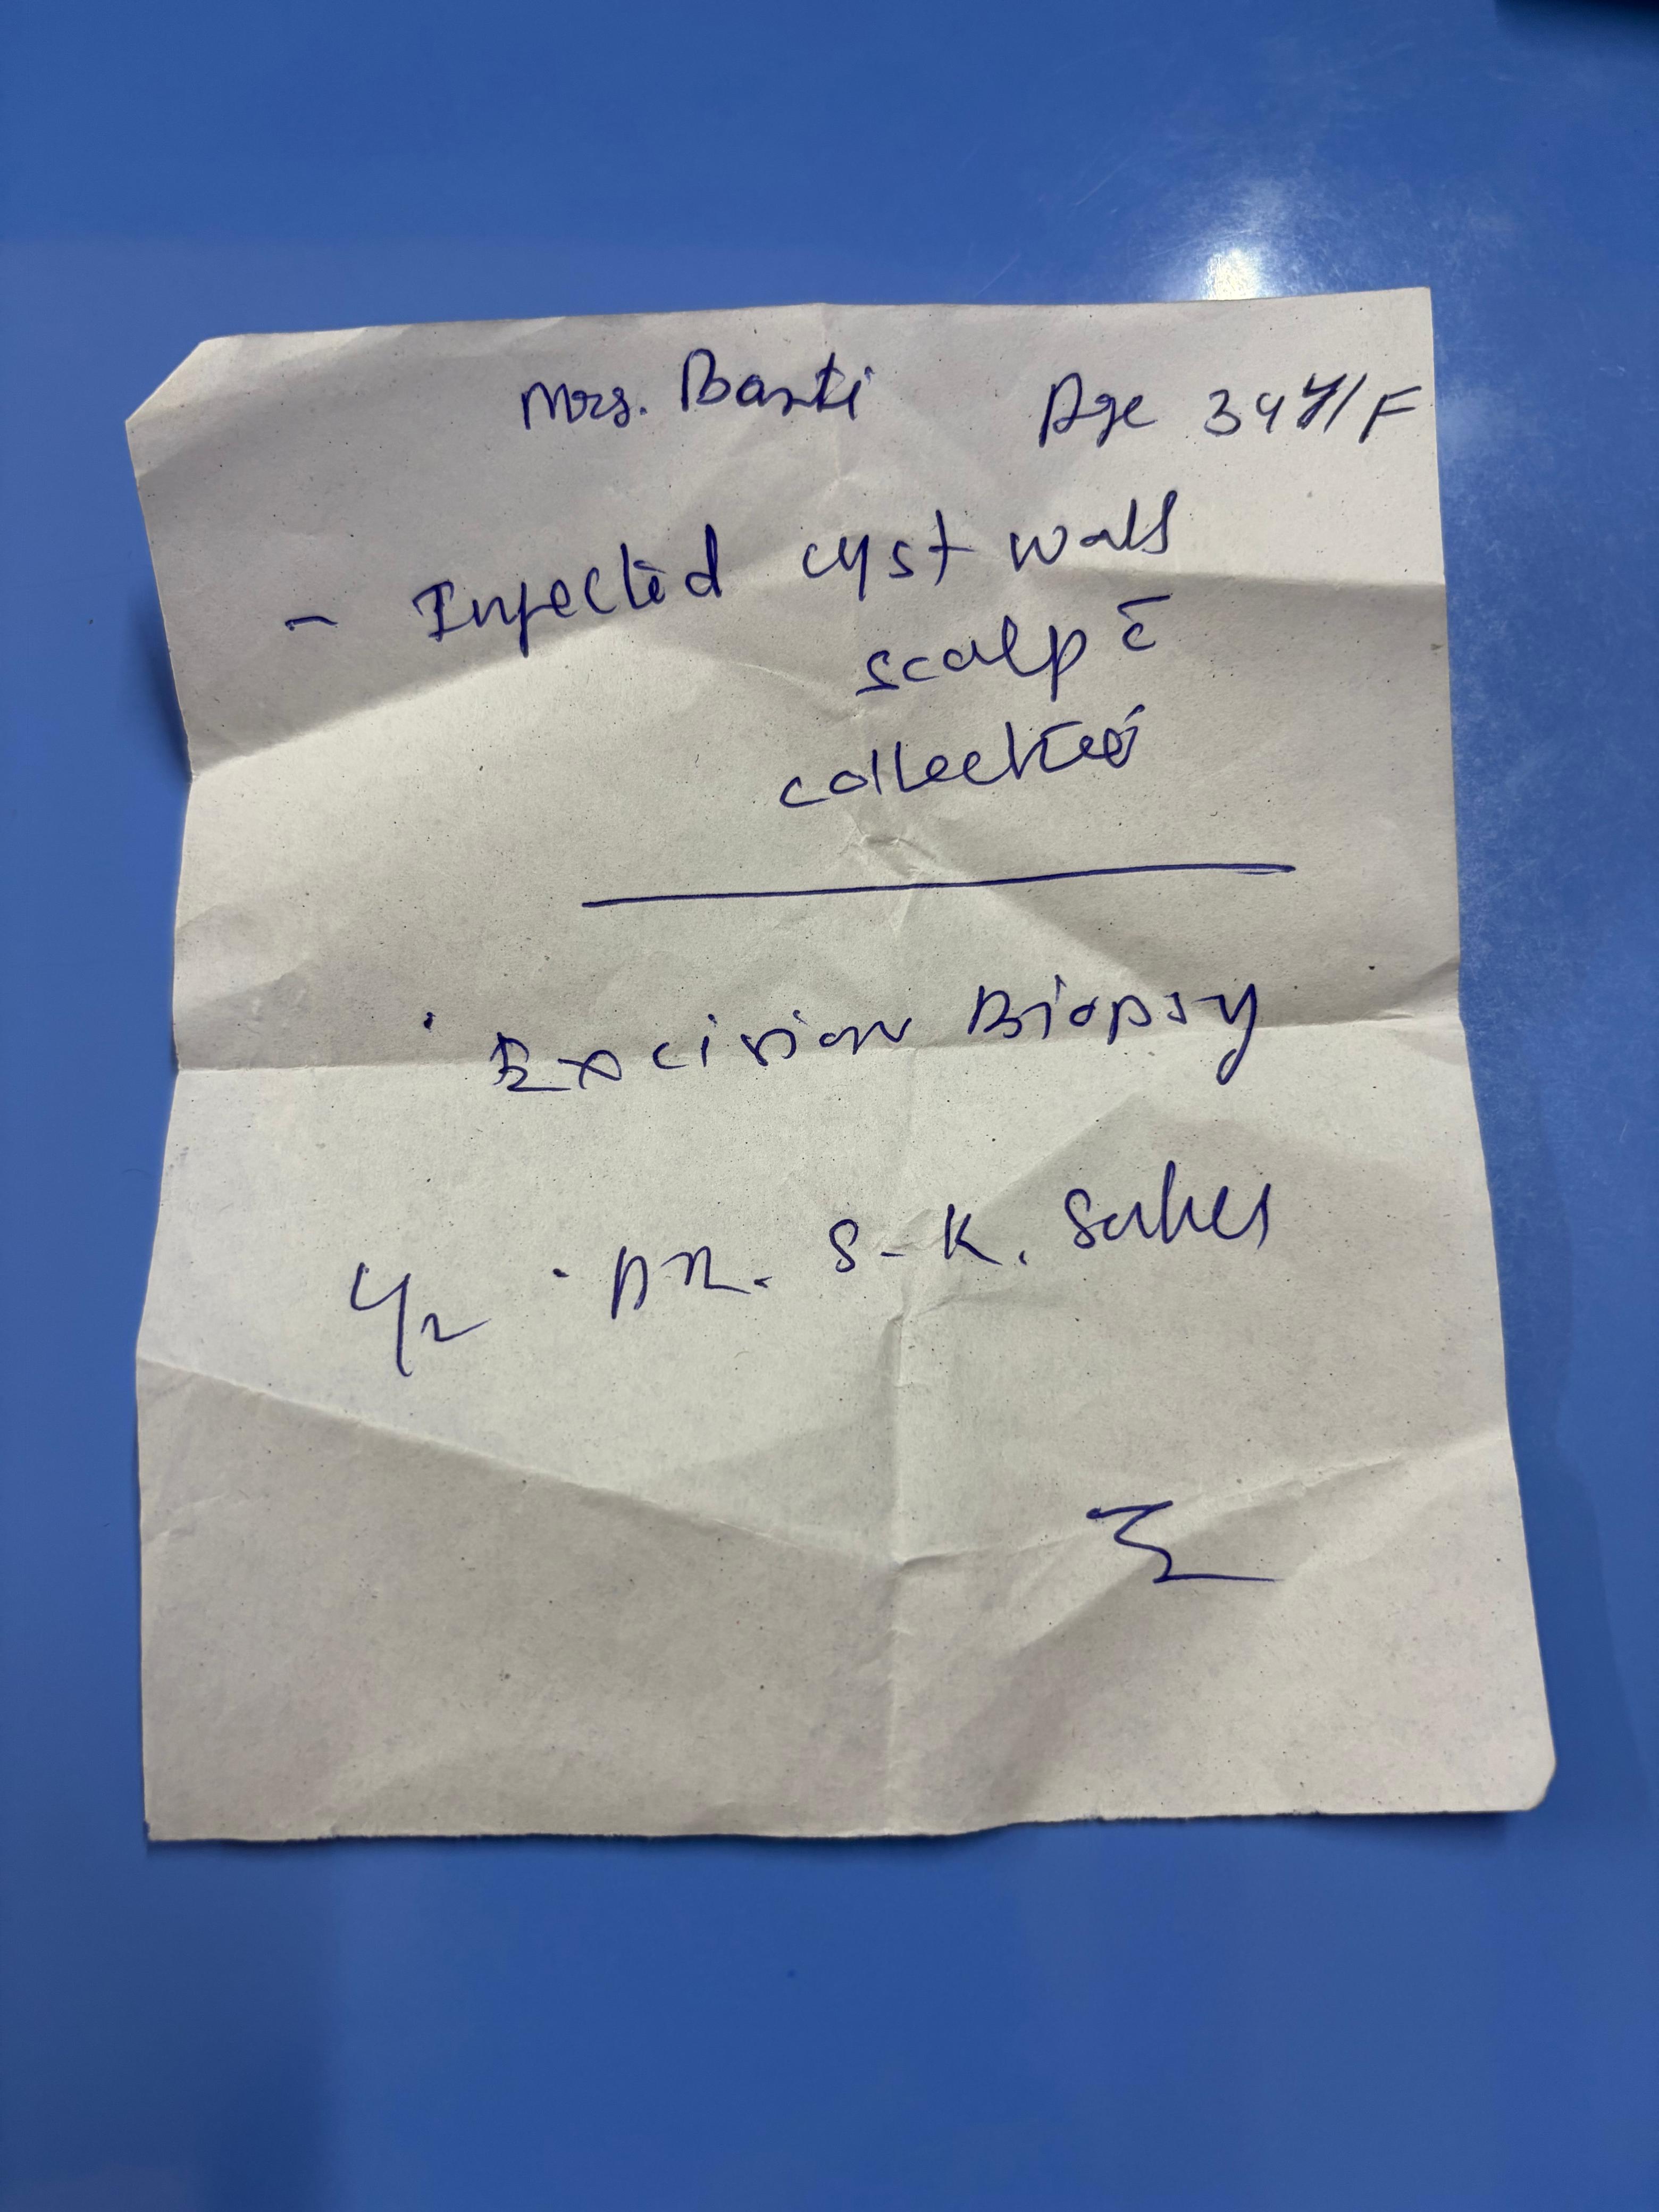 Mrs. Basti Age 34Y/F
- Infected cyst wall
scalp c̄
collection
Excision Biopsy
Dr. S. K.